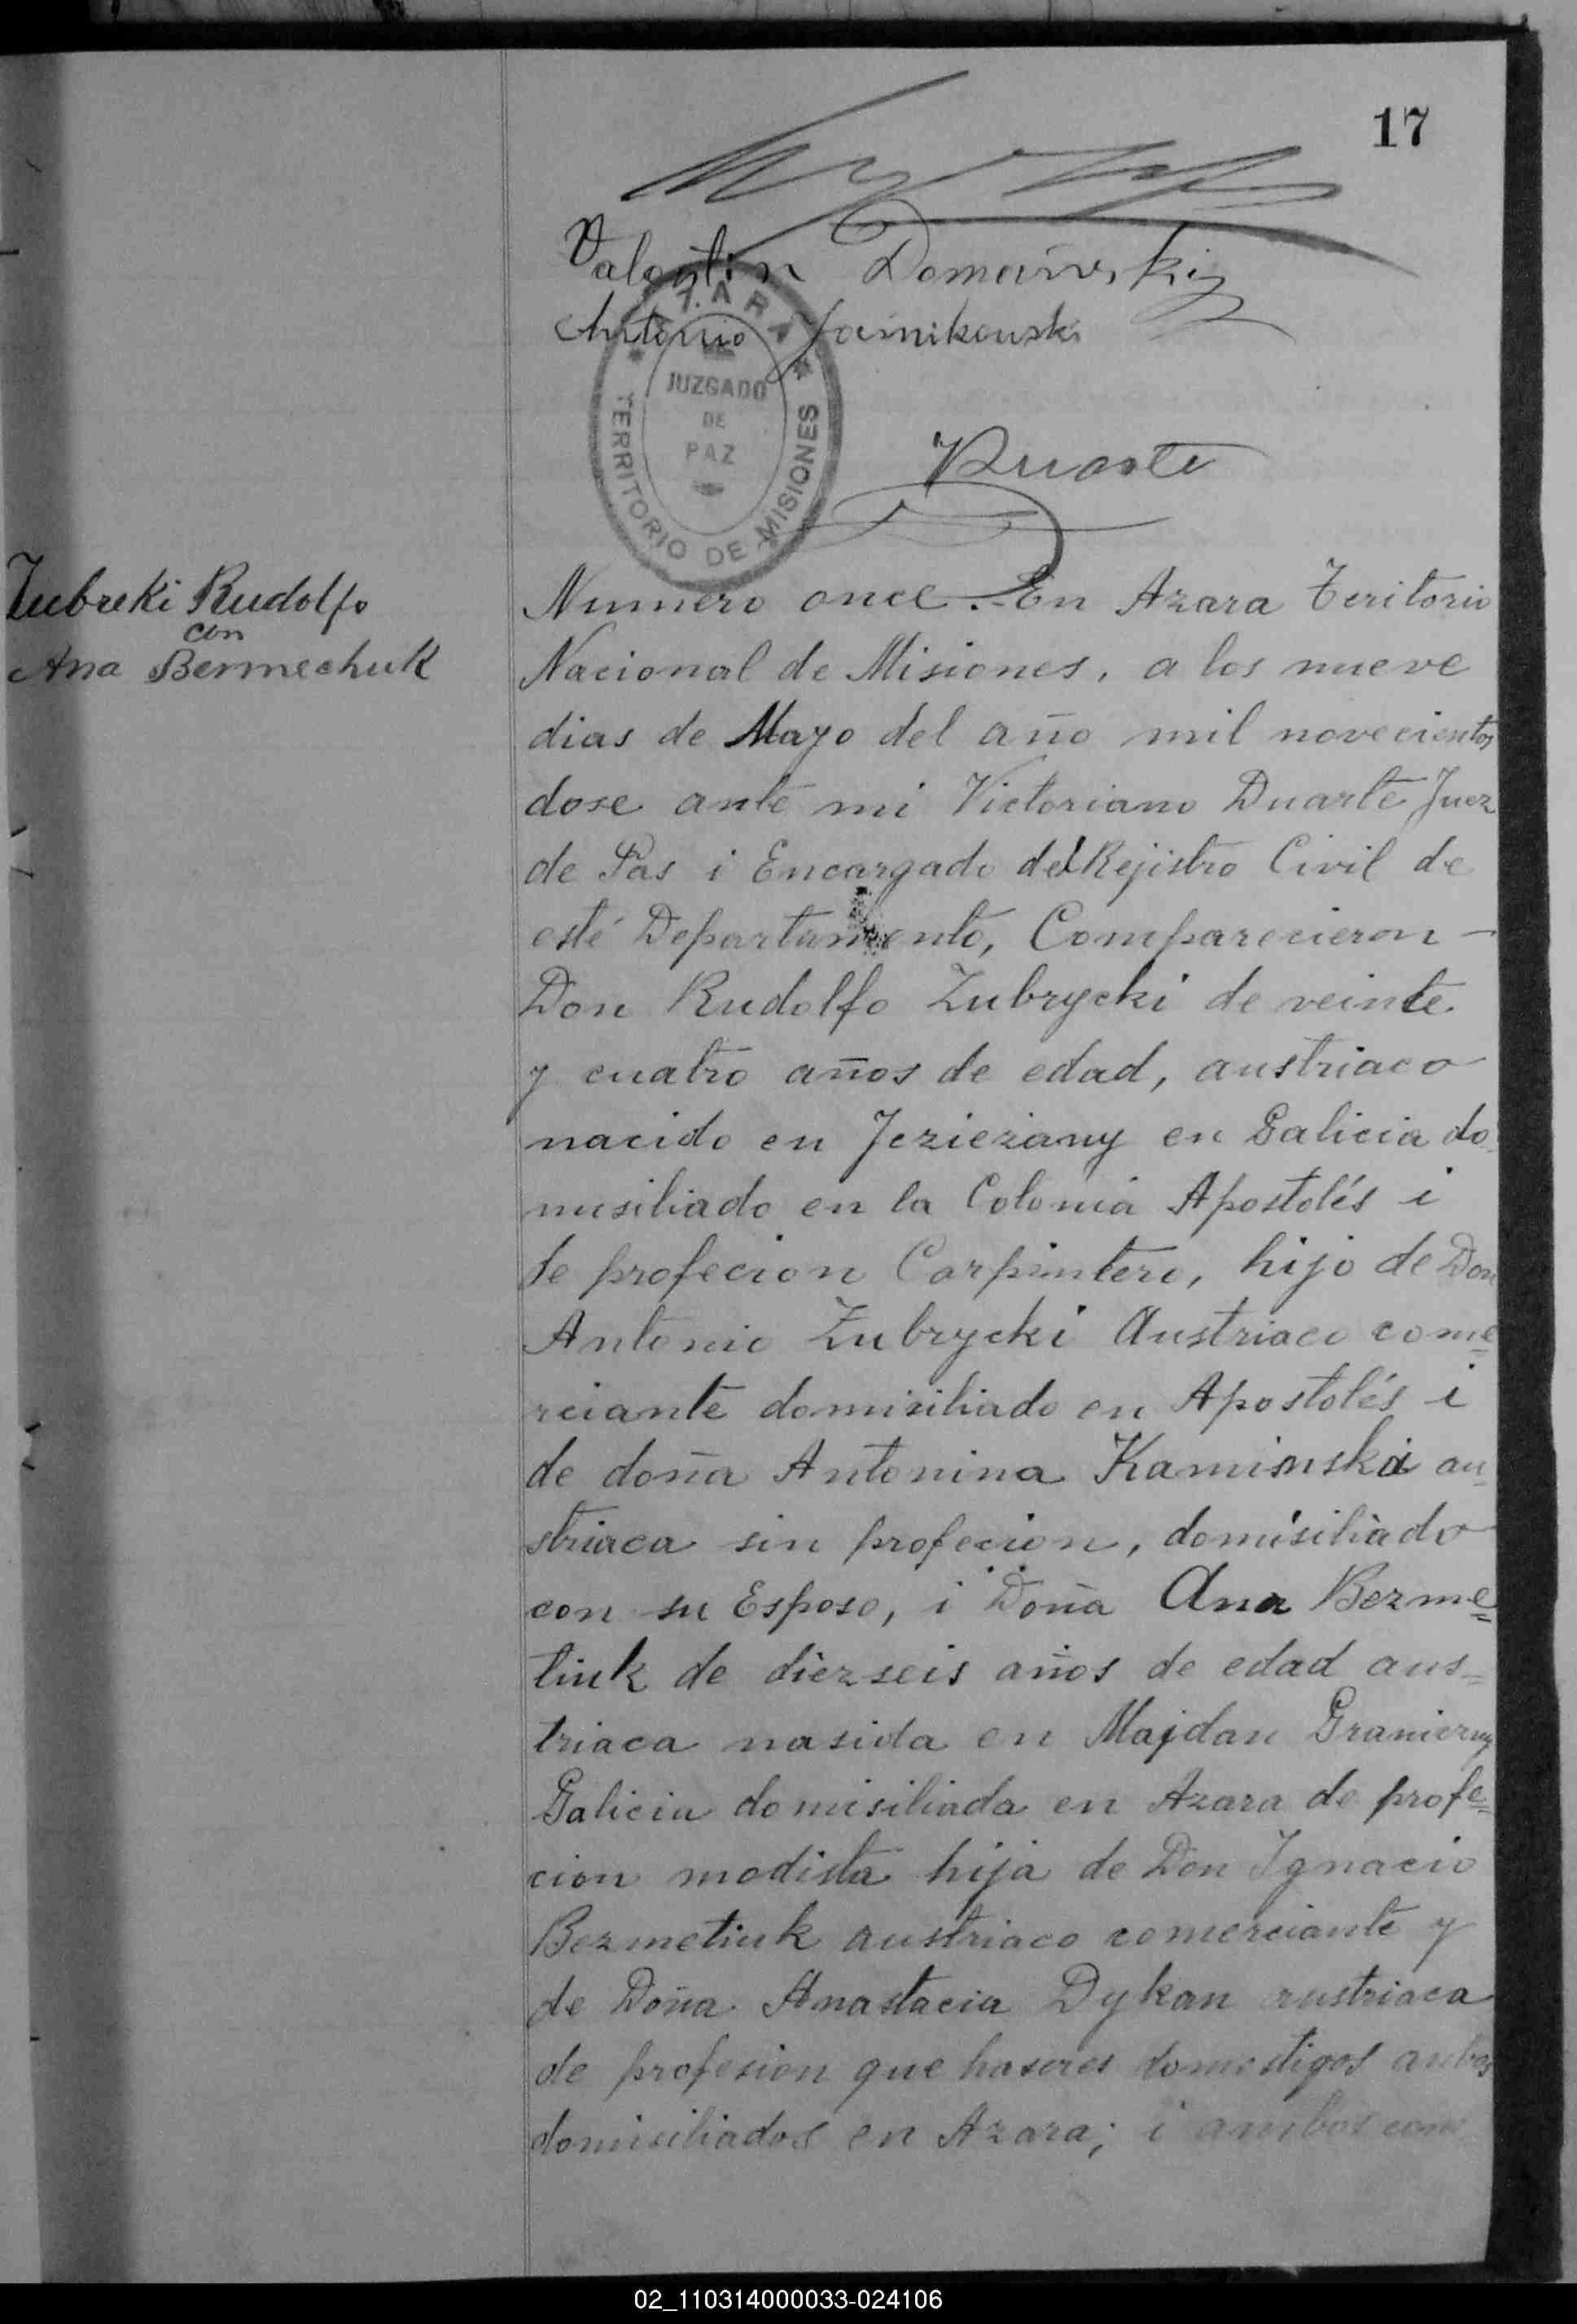 17
Valentin Domański
Antonio
AZARA
JUZGADO
DE
PAZ
TERRITORIO DE MISIONES
Duarte
Zubreki Rudolfo
con
Ana Bermechuk
Numero once.- En Azara Teritorio
Nacional de Misiones, a los nueve
dias de Mayo del año mil novecientos
dose ante mi Victoriano Duarte Juez
de Pas i Encargado del Rejistro Civil de
esté Departamento, Comparecieron -
Don Rudolfo Zubrycki de veinte
y cuatro años de edad, austriaco
nacido en Jezierzany en Galicia do
misiliado en la Colonia Apostolés i
de profecion Carpintero, hijo de Don
Antonio Zubrycki Austriaco come=
rciante domisiliado en Apostolés i
de doña Antonina Kaminska au=
striaca sin profecion, domisiliado
con su Esposo, i Doña Ana Bezme=
tiuk de diezseis años de edad aus=
triaca nasida en Majdan Graniczny
Galicia domisiliada en Azara de profe=
cion modista hija de Don Ignacio
Bezmetiuk austriaco comerciante y
de Doña Anastacia Dykan austriaca
de profesion que haseres domestigos anbos
domiciliados en Azara; i ambos con
02_110314000033-024106